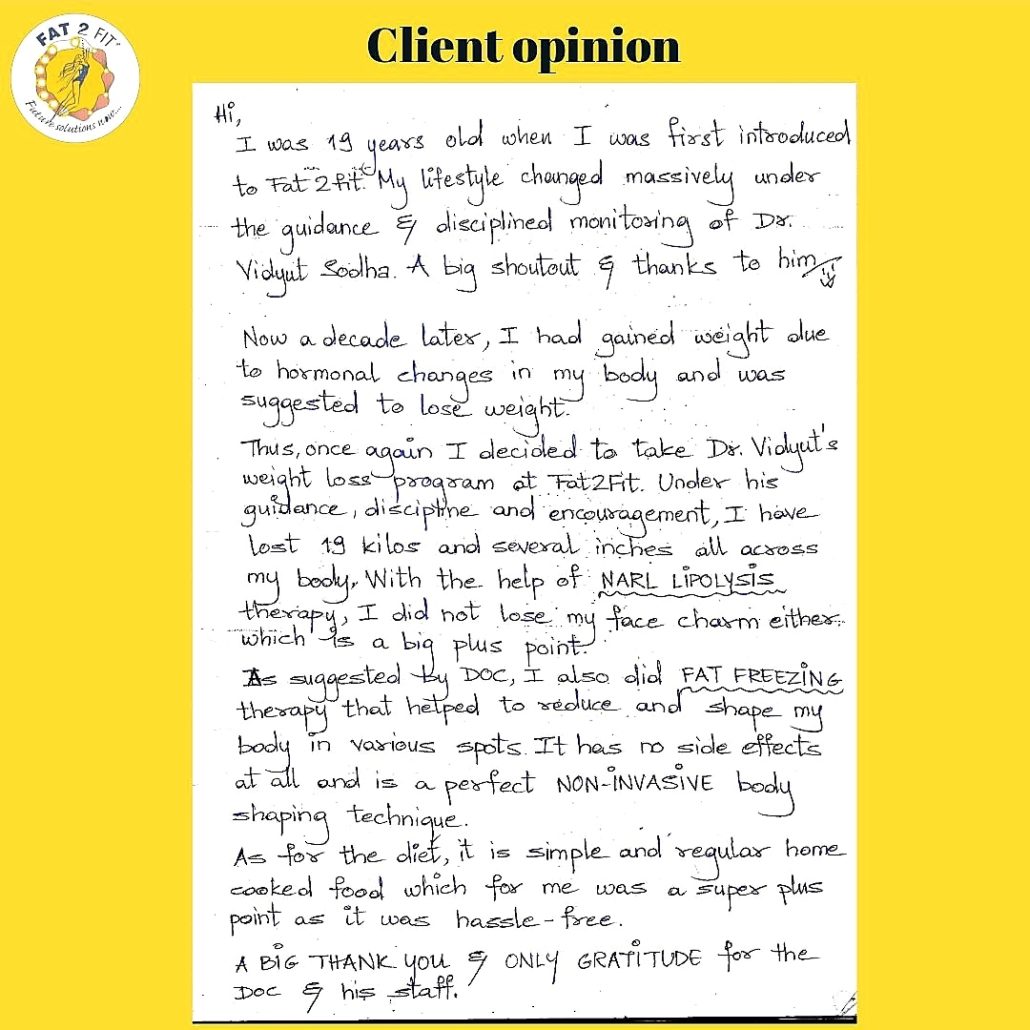 FAT 2 FIT
Future solutions now...
Client opinion
Hi,
I was 19 years old when I was first introduced
to Fat 2 fit. My lifestyle changed massively under
the guidance & disciplined monitoring of Dr.
Vidyut Sodha. A big shoutout & thanks to him
Now a decade later, I had gained weight due
to hormonal changes in my body and was
suggested to lose weight.
Thus, once again I decided to take Dr. Vidyut's
weight loss program at Fat2Fit. Under his
guidance, discipline and encouragement, I have
lost 19 kilos and several inches all across
my body. With the help of NARL LIPOLYSIS
therapy, I did not lose my face charm either
which is a big plus point.
As suggested by DOC, I also did FAT FREEZING
therapy that helped to reduce and shape my
body in various spots. It has no side effects
at all and is a perfect NON-INVASIVE body
shaping technique.
As for the diet, it is simple and regular home
cooked food which for me was a super plus
point as it was hassle-free.
A BIG THANK YOU & ONLY GRATITUDE for the
DOC & his staff.